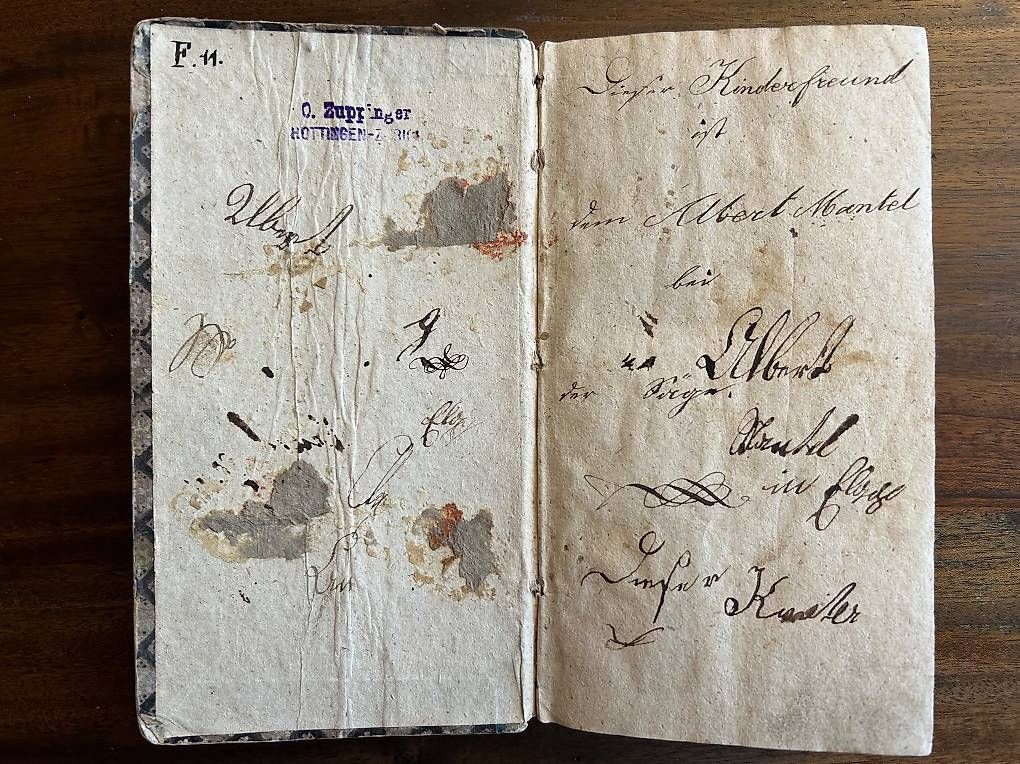 F. 11.
O. Zuppinger
HOTTINGEN-ZÜRICH
Albert
Elgg
Dieser Kinderfreund
ist
dem Albert Mantel
bei
Albert
der Säge.
Mantel
in Elgg
Dieser